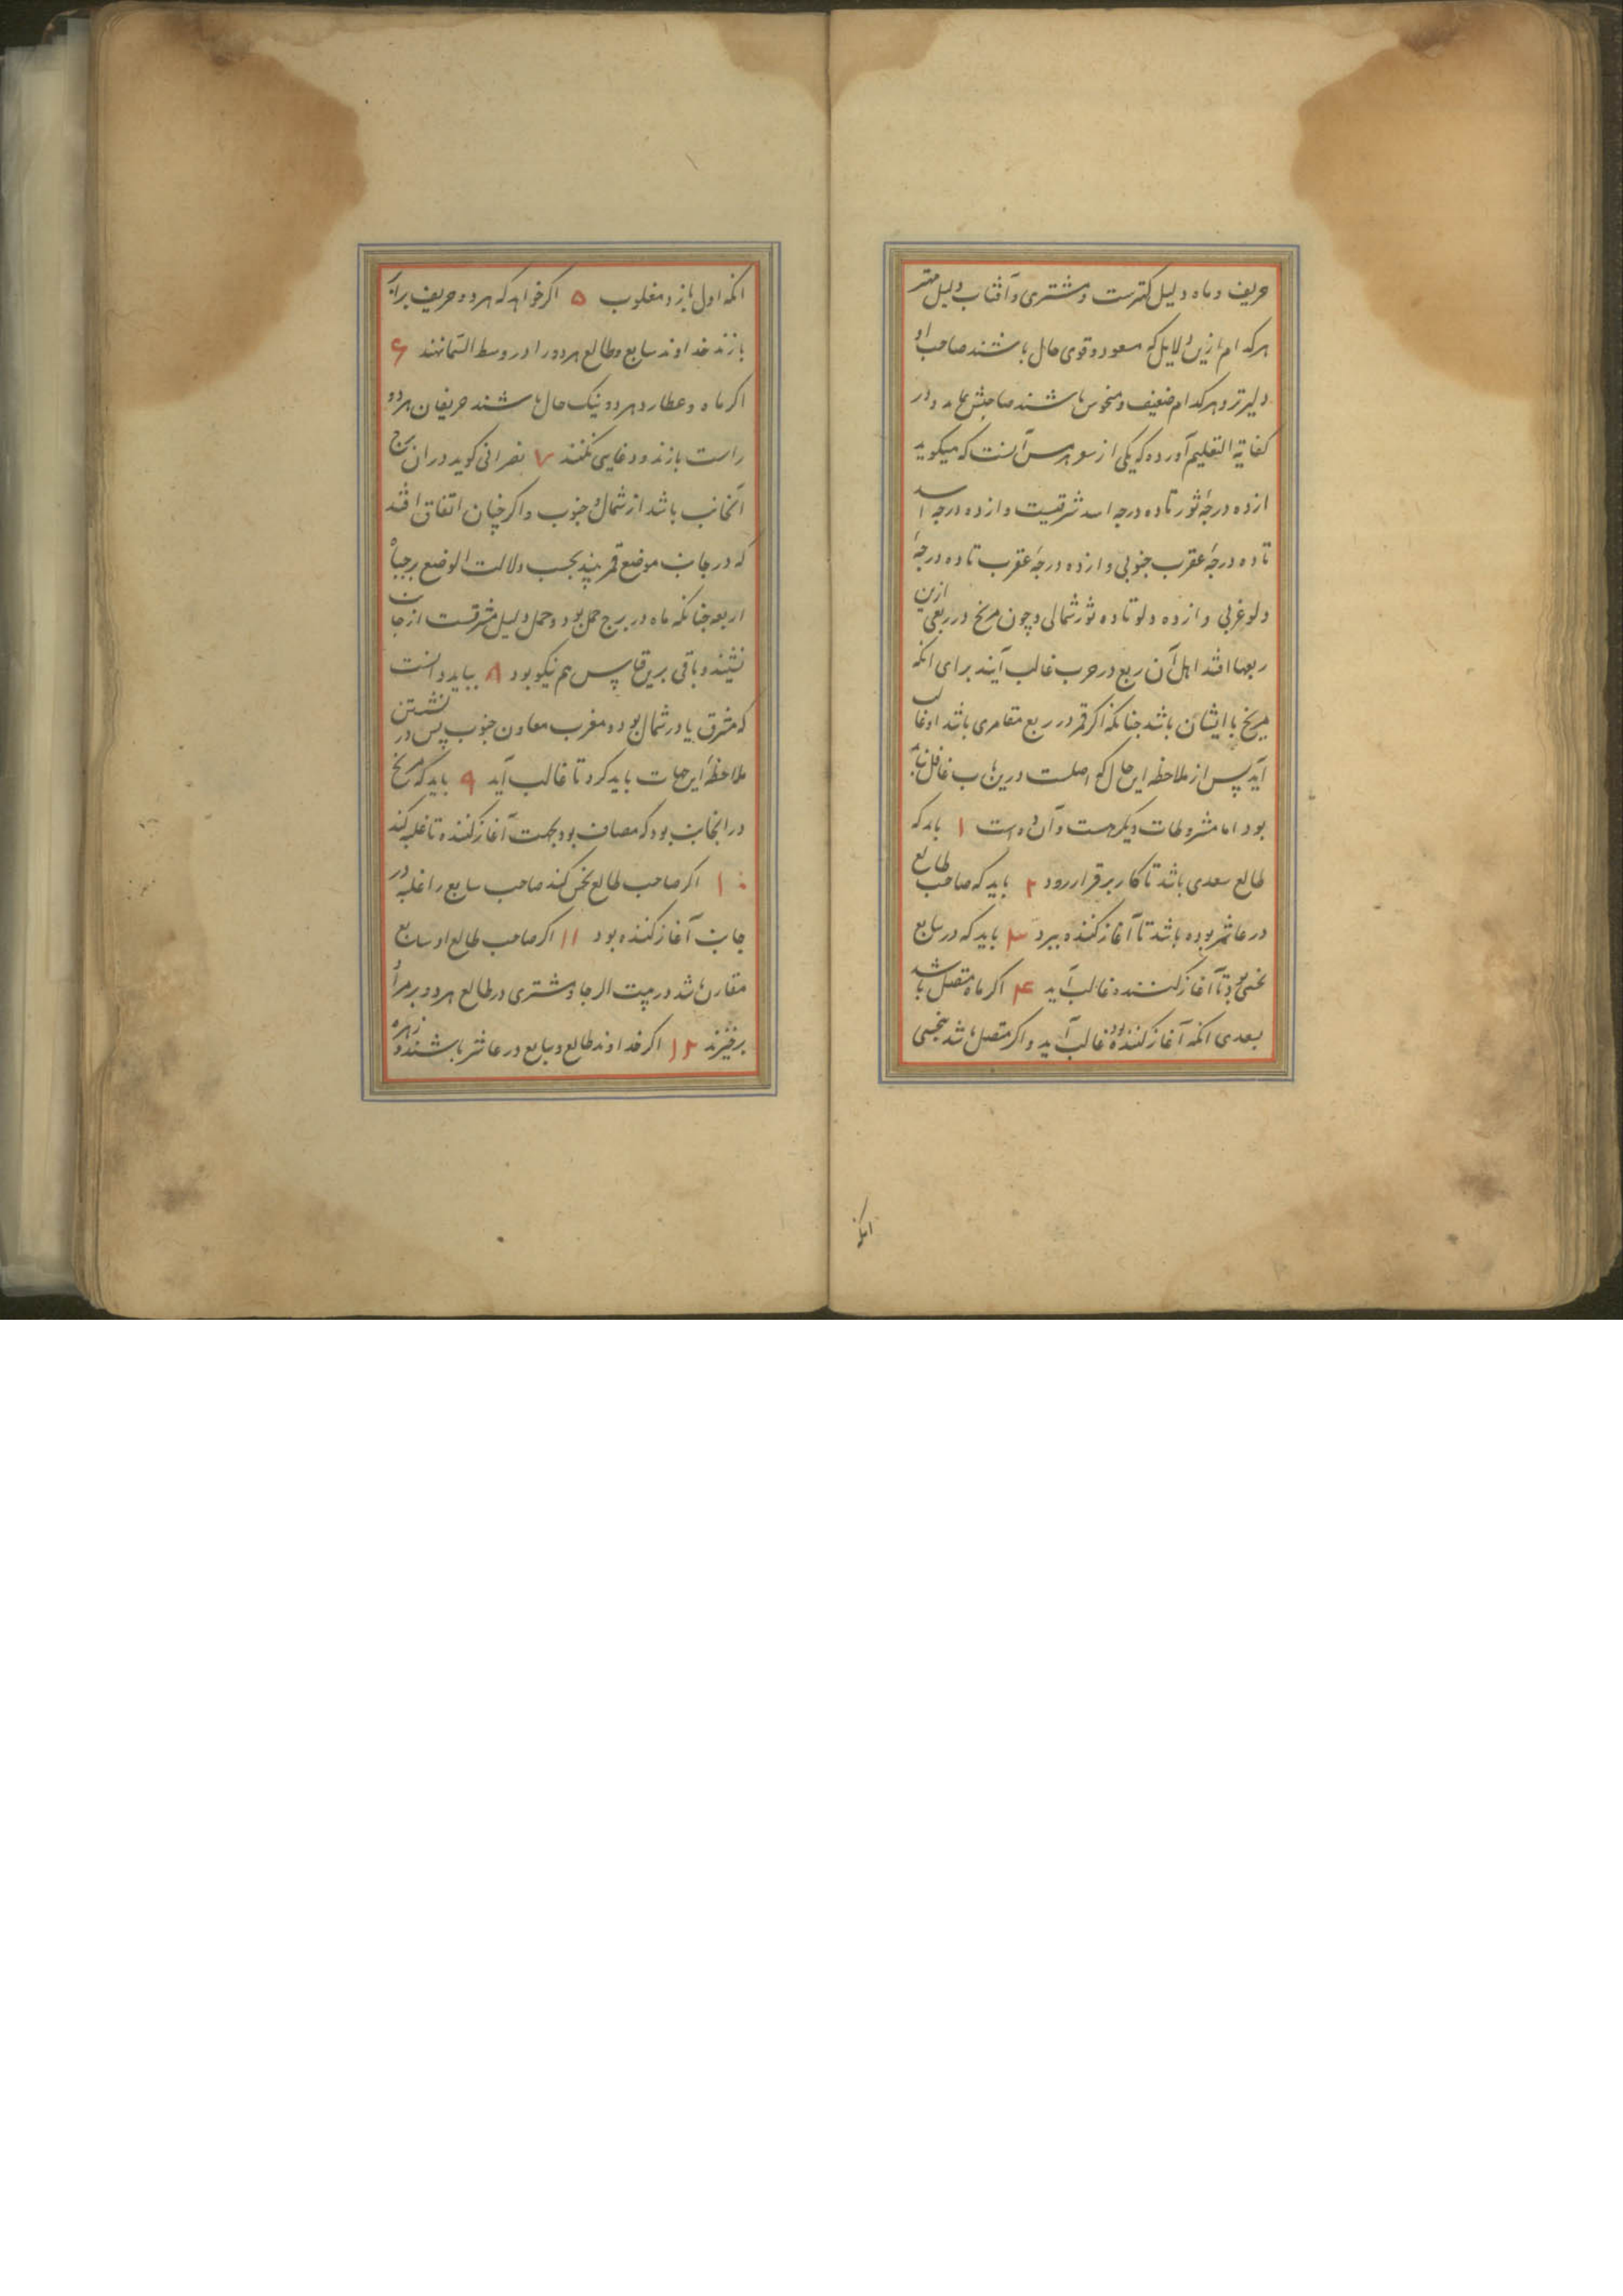 حریف و ماه دلیل کهترست و مشتری و آفتاب دلیل مهتر
هرکدام ازین دلایل که مسعود و قوی حال باشند صاحب او
دلیرتر و هرکدام ضعیف و منحوس باشند صاحبش و در
کفایة التعلیم آورده که یکی از آنست که میکوید
از ده درجۀ ثور تا ده درجه اسد شرقیست و از ده درجه اسد
تا ده درجۀ عقرب جنوبی و از ده درجۀ عقرب تا ده درجۀ
دلو غربی و از ده دلو تا ده ثور شمالی و چون مریخ در ربعی ازین
ربعها افتد اهل آن ربع در حرب غالب آیند برای انکه
مریخ با ایشان باشد جنانکه اکر قمر در ربع مقامری باشد او غالب
آید پس از ملاحظه این حال که اصلست درین باب غافل نباید
بود اما مشروطات دیکر هست و آن ده است ۱ باید که
طالع سعدی باشد تا کار برقرار رود ۲ باید که صاحب طالع
در عاشر بوده باشد تا آغاز کننده ببرد ۳ باید که در سابع
نحسی بود تا آغاز کننده غالب آید ۴ اکر ماه متصل باشد
بسعدی انکه آغاز کننده بود غالب آید و اکر متصل باشد بنحسی
انکه
انکه اول بازد مغلوب ۵ اکر خواهد که هر دو حریف برابر
بازند خداوند سابع و طالع هر دو را در وسط السما نهند ۶
اکر ماه و عطارد هر دو نیک حال باشند حریفان هر دو
راست بازند و دغایی نکنند ۷ نصرانی کوید در ان برج
آنجانب باشد از شمال و جنوب و اکر چنان اتفاق افتد
که در جانب موضع قمر بحسب دلالت الوضع برجهات
اربعه جنانکه ماه در برج حمل بود و حمل دلیل مشرقست از جانب
نشیند و باقی برین قیاس هم نیکو بود ۸ بباید دانست
که مشرق یاور شمال بود و مغرب معاون جنوب پس در نشستن
ملاحظۀ این جهات باید کرد تا غالب آید ۹ باید که مریخ
در انجانب بود که مصاف بود بجهت آغاز کننده تا غلبه کند
۱۰ اکر صاحب طالع نحس کند صاحب سابع را غلبه در
جانب آغاز کننده بود ۱۱ اکر صاحب طالع او سابع
مقارن باشد در بیت الرجا و مشتری در طالع هر دو بر مراد
برخیزند ۱۲ اکر خداوند طالع و سابع در عاشر باشند و زهره